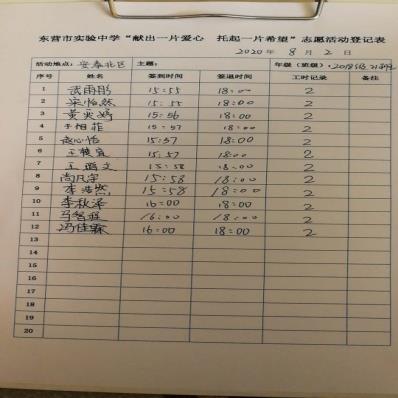 东营市实验中学“献出一片爱心 托起一片希望”志愿活动登记表
2020年 8月 2日
活动地点：安泰北区 主题： 年级（班级）：2018级
序号 姓名 签到时间 签退时间 工时记录 备注
1 武雨彤 15:55 18:00 2
2 怡然 15:55 18:00 2
3 黄 婷 15:56 18:00 2
4 相菲 15:57 18:00 2
5 心怡 15:57 18:00 2
6 王 15:57 18:00 2
7 文 15:58 18:00 2
8 尚凡宇 15:58 18:00 2
9 李浩然 15:58 18:00 2
10 李秋泽 16:00 18:00 2
11 马 16:00 18:00 2
12 冯佳霖 16:00 18:00 2
13
14
15
16
17
18
19
20